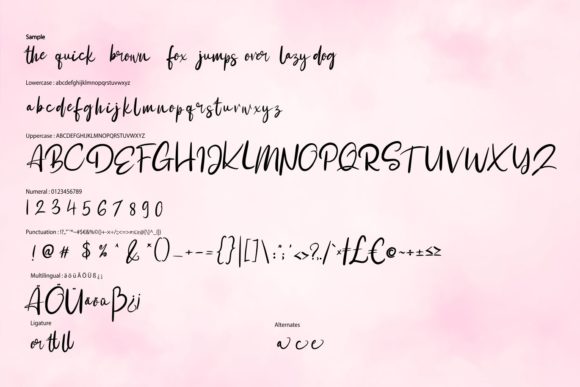 Sample
the quick brown fox jumps over lazy dog
Lowercase : abcdefghijklmnopqrstuvwxyz
abcdefghijklmnopqrstuvwxyz
Uppercase : ABCDEFGHIJKLMNOPQRSTUVWXYZ
ABCDEFGHIJKLMNOPQRSTUVWXYZ
Numeral : 0123456789
1234567890
Punctuation :
!@#$%^&*()_+-={}|[]\:;'<>?,./`×¥£€©~÷±≤≥
Multilingual : ä ö ü Ä Ö Ü ß ¿ ¡
ÄÖÜäöüß¿¡
Ligature
or tt ll
Alternates
a c e